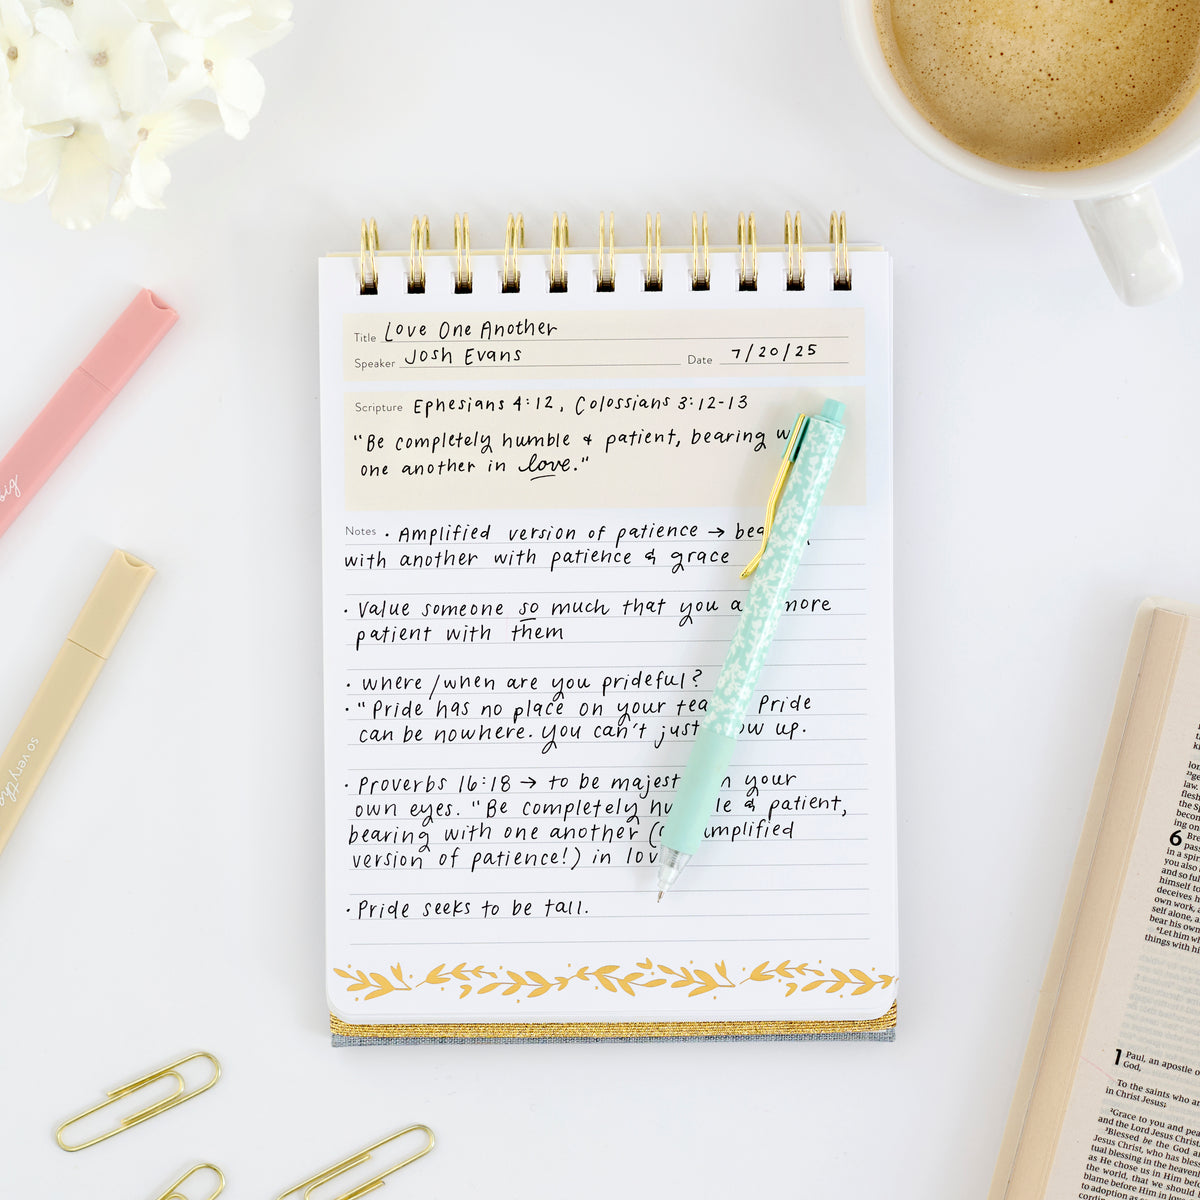 Title Love One Another
Speaker Josh Evans Date 7/20/25
Scripture Ephesians 4:12, Colossians 3:12-13
"Be completely humble & patient, bearing
one another in love."
Notes • Amplified version of patience →
with another with patience & grace
• Value someone so much that you more
patient with them
• where/when are you prideful?
• "Pride has no place on your Pride
can be nowhere. You can't just up.
• Proverbs 16:18 → to be your
own eyes. "Be completely & patient,
bearing with one another ( amplified
version of patience!) in
• Pride seeks to be tall.
big
so very
6
law.
in a
you also
and so
himself to
deceives
own work,
self alone,
bear his own
Let him
things with
1 Paul, an apostle
God,
To the saints who
in Christ Jesus:
2Grace to you and
and the Lord Jesus
3Blessed be the God
Jesus Christ, who has
tual blessing in the
as He chose us in Him
the world, that we should
blame before Him in
to adoption as